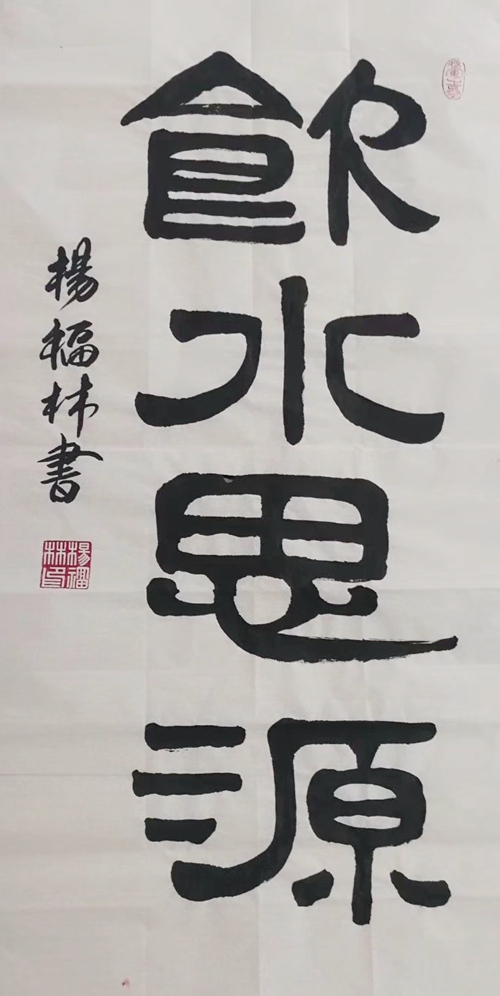 飲水思源
楊福林書
楊福林印